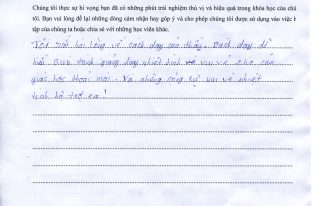 Chúng tôi thực sự hi vọng bạn đã có những phút trải nghiệm thú vị và hiệu quả trong khóa học của chú
tôi. Bạn vui lòng để lại những dòng cảm nhận hay góp ý và cho phép chúng tôi được sử dụng vào việc h
tập của chúng ta hoặc chia sẻ với những học viên khác.
Tôi rất hài lòng về cách dạy của thầy. Cách dạy dễ
hiểu quá trình giảng dạy nhiệt tình vui vẻ cho cảm
giác học thoải mái. Và những công sự vui vẻ nhiệt
tình hỗ trợ em!